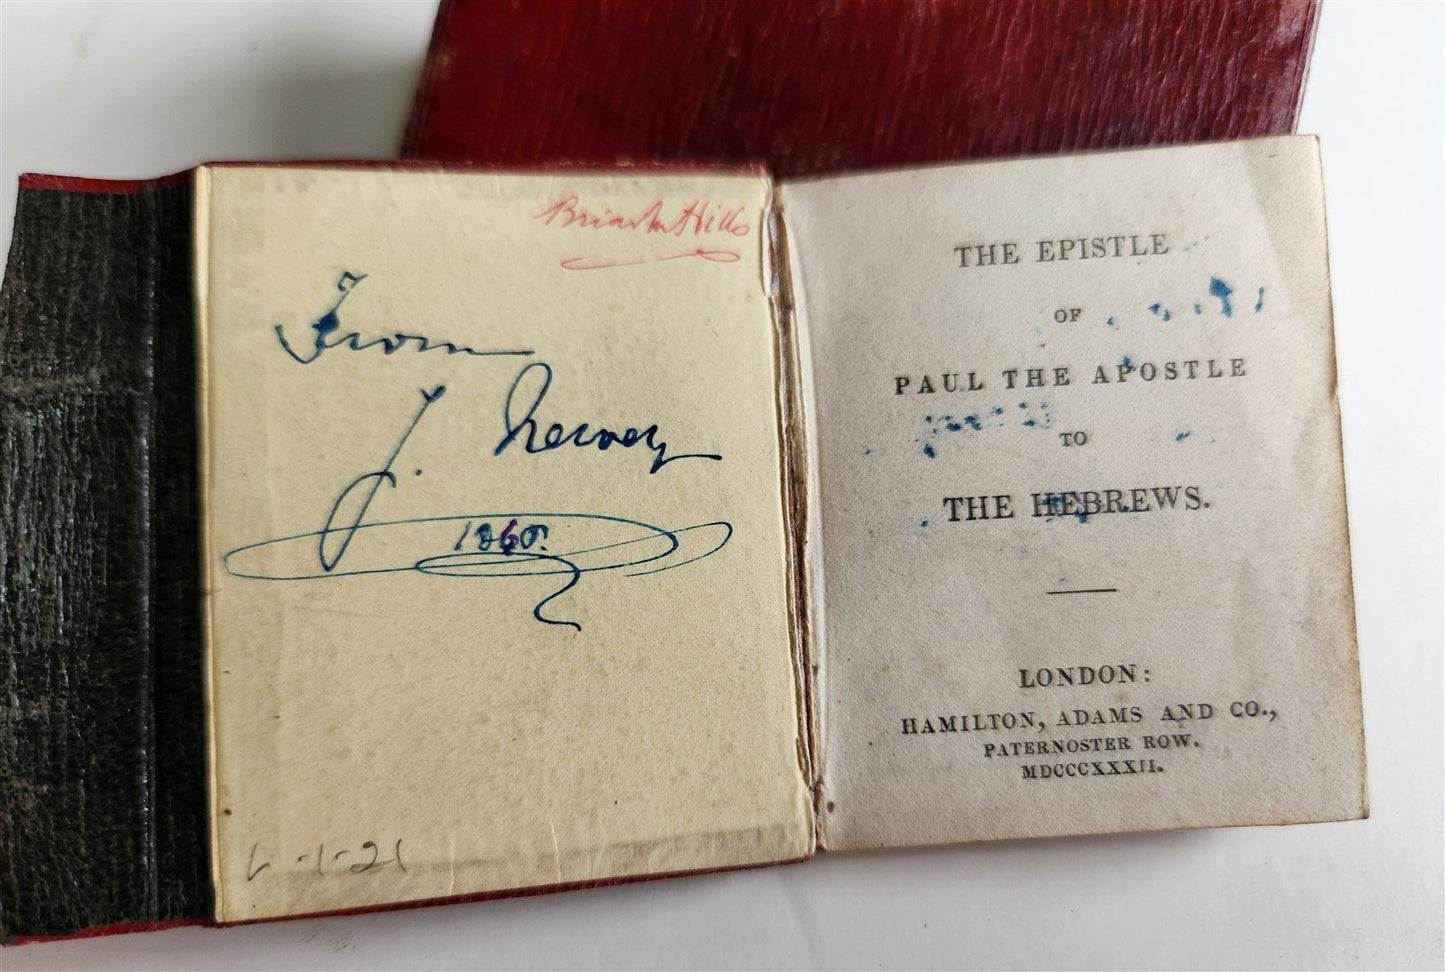 Hills
From
J. Hervey
1860.
THE EPISTLE
OF
PAUL THE APOSTLE
TO
THE HEBREWS.
LONDON:
HAMILTON, ADAMS AND CO.,
PATERNOSTER ROW.
MDCCCXXXII.